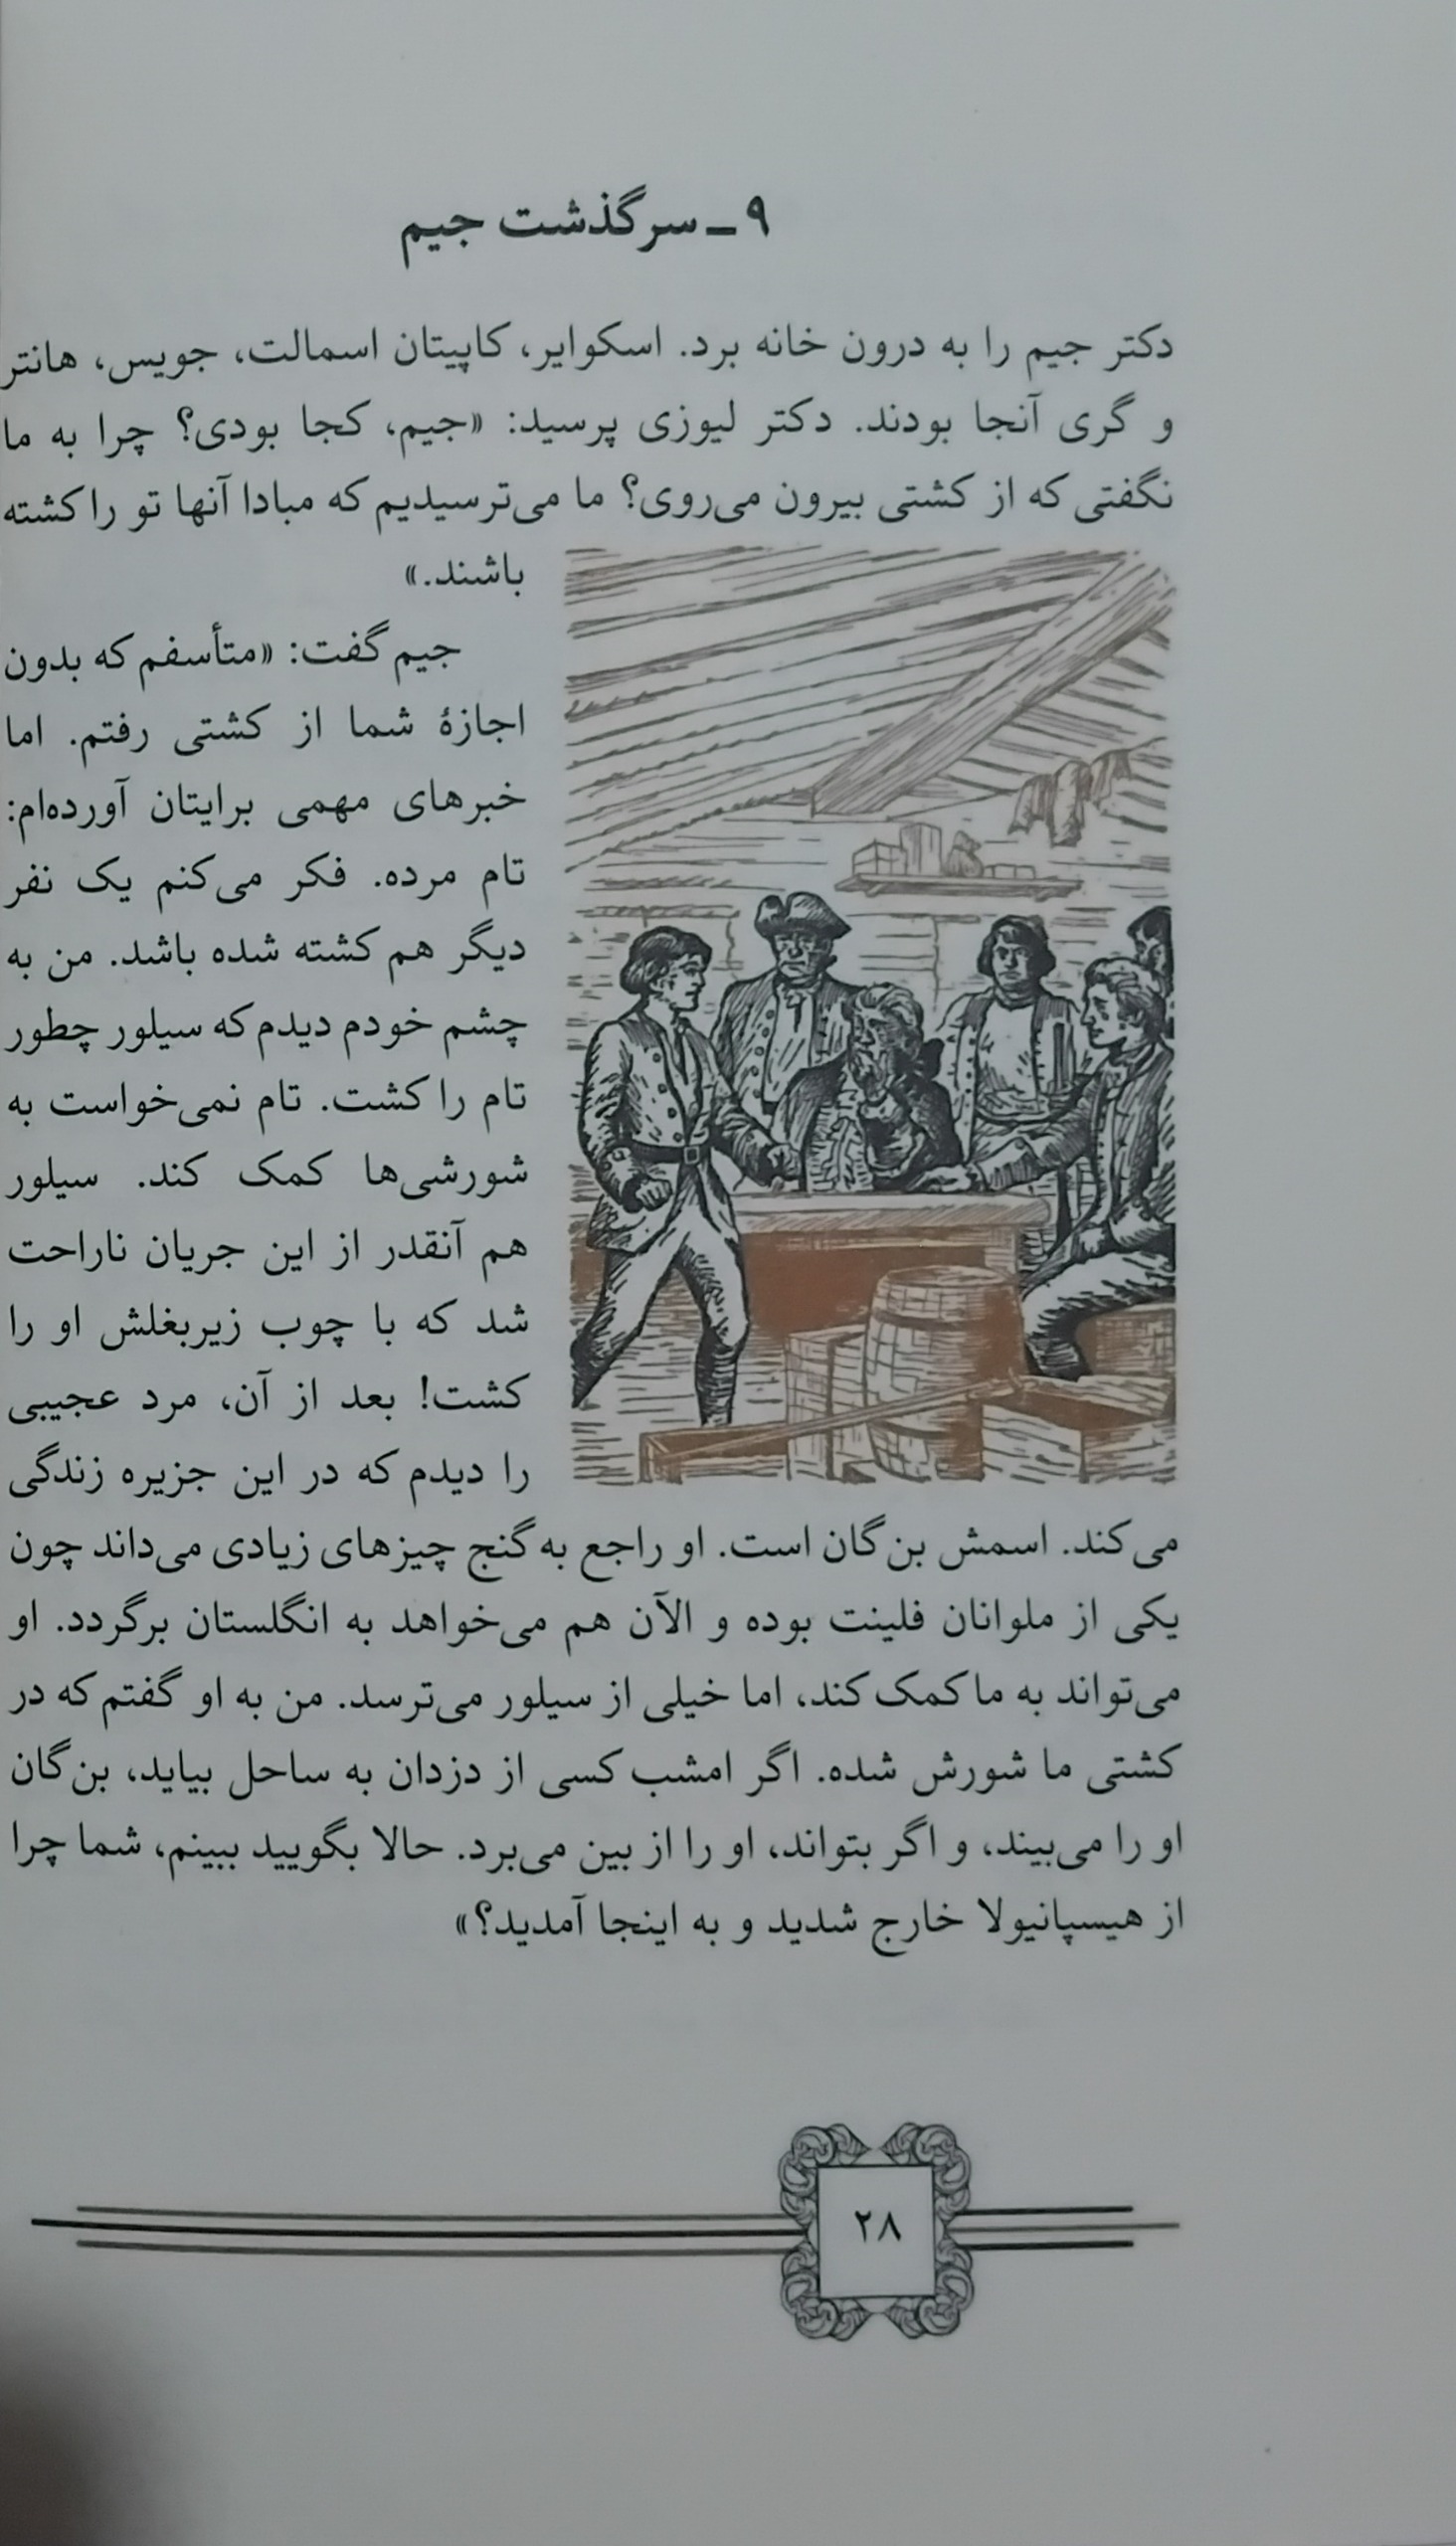 ۹ ـ سرگذشت جیم
دکتر جیم را به درون خانه برد. اسکوایر، کاپیتان اسمالت، جویس، هانتر
و گری آنجا بودند. دکتر لیوزی پرسید: «جیم، کجا بودی؟ چرا به ما
نگفتی که از کشتی بیرون می‌روی؟ ما می‌ترسیدیم که مبادا آنها تو را کشته
باشند.»
جیم گفت: «متأسفم که بدون
اجازهٔ شما از کشتی رفتم. اما
خبرهای مهمی برایتان آورده‌ام:
تام مرده. فکر می‌کنم یک نفر
دیگر هم کشته شده باشد. من به
چشم خودم دیدم که سیلور چطور
تام را کشت. تام نمی‌خواست به
شورشی‌ها کمک کند. سیلور
هم آنقدر از این جریان ناراحت
شد که با چوب زیربغلش او را
کشت! بعد از آن، مرد عجیبی
را دیدم که در این جزیره زندگی
می‌کند. اسمش بن‌گان است. او راجع به گنج چیزهای زیادی می‌داند چون
یکی از ملوانان فلینت بوده و الآن هم می‌خواهد به انگلستان برگردد. او
می‌تواند به ما کمک کند، اما خیلی از سیلور می‌ترسد. من به او گفتم که در
کشتی ما شورش شده. اگر امشب کسی از دزدان به ساحل بیاید، بن‌گان
او را می‌بیند، و اگر بتواند، او را از بین می‌برد. حالا بگویید ببینم، شما چرا
از هیسپانیولا خارج شدید و به اینجا آمدید؟»
۲۸